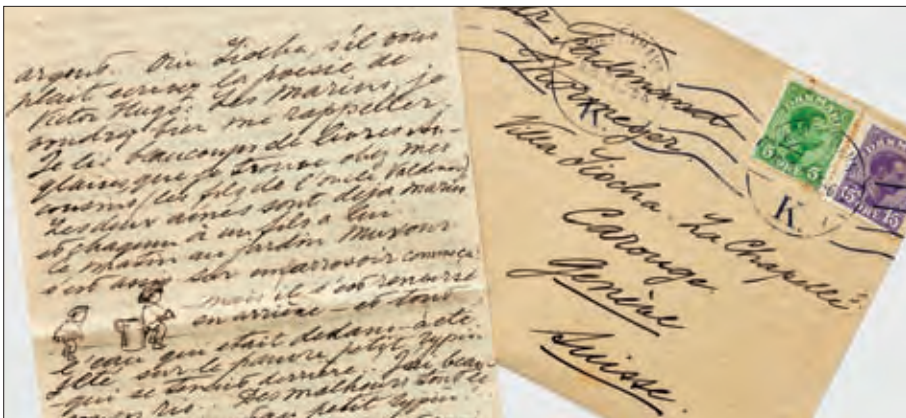 argent. Oui Liocha, s'il vous
plait ecrivez la poesie de
Victor Hugo: Les Marins, je
voudrai bien me rappeller
Je lis beaucoups de livres An-
glaises, que je trouve chez mes
cousins (les fils de l'oncle Valdemar)
Les deux ainés sont déja marins
et chaqun à un fils a lui
ce matin au jardin
s'est assis sur un arrosoir
mais il s'est renversé
en arrière — et tout
l'eau qui etait dedans a été
jeté sur le pauvre petit
qui se tenait derrière. J'ai beau-
ris. Des malheurs
au petit
Ferdinand
Villa Liocha. La Chapelle
Carouge
Genève
Suisse.
K.
K.
DANMARK
5 ØRE 5
DANMARK
15 ØRE 15